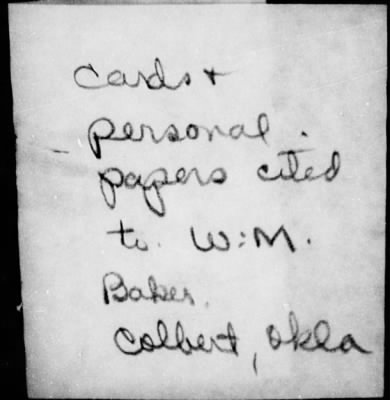 cards +
personal.
papers cited
to. W.M.
Baker.
Colbert, Okla